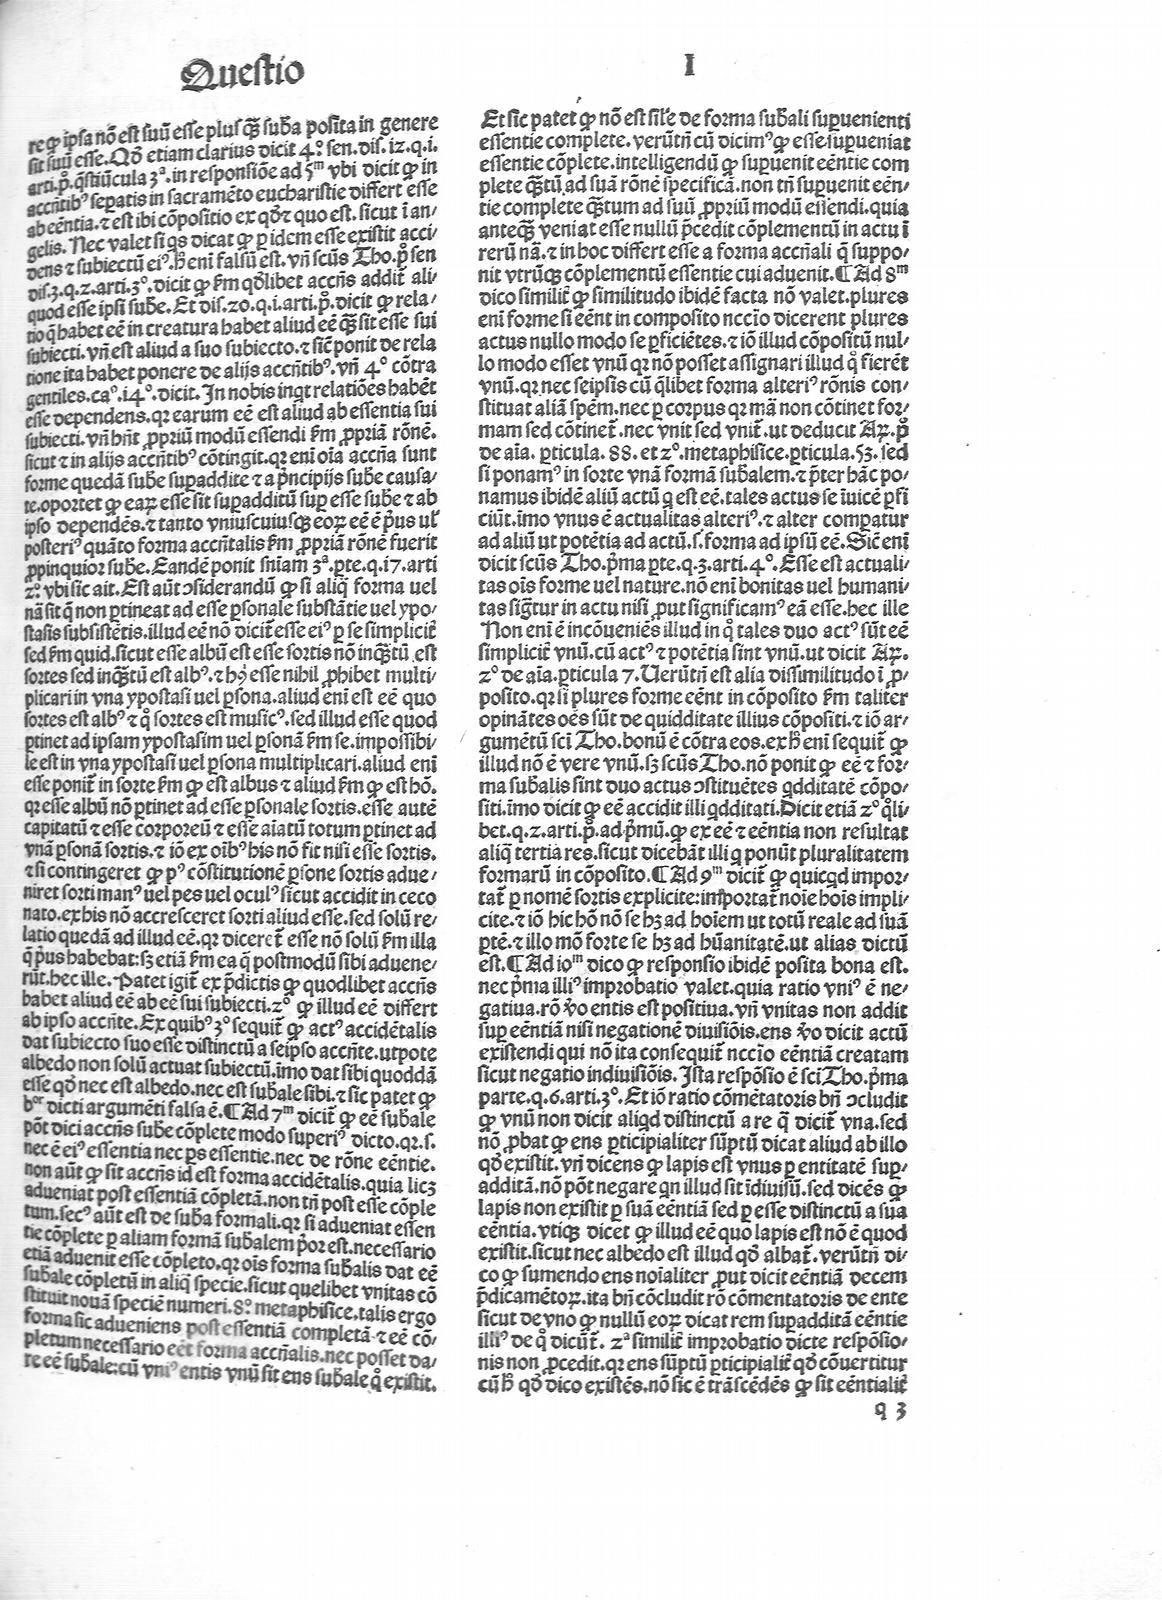 Questio
I
re ꝙ ipsa nō est suū esse plusq̃ʒ suba posita in genere
sit suū esse. Qḋ etiam clarius dicit 4.° sen. dis. 12. q. i.
arti. pͦ. q̃stiūcula 3ᵃ. in responsiōe ad 5ᵐ vbi dicit ꝙ in
accñtibꝰ sepatis in sacramēto eucharistie differt esse
ab eēntia. ⁊ est ibi cōpositio ex qͦd ⁊ quo est. sicut ī an/
gelis. Nec valet si qs dicat ꝙ ꝑ idem esse existit acci/
dens ⁊ subiectū eiꝰ. ħ enī falsū est. vñ scūs Tho. pͦ sen
dis. 3. q. 2. arti. 3°. dicit ꝙ ẜm qdlibet accñs addit̃ ali/
quod esse ipsi sube. Et dis. 20. q. i. arti. pͦ. dicit ꝙ rela/
tio q̄ habet eē in creatura habet aliud eē q̃ʒ sit esse sui
subiecti. vñ est aliud a suo subiecto. ⁊ sic̄ ponit de rela
tione ita habet ponere de alijs accñtibꝰ. vñ 4° cōtra
gentiles. caᵒ. 14°. dicit. In nobis inqt relatiōes habēt
esse dependens. qꝛ earum eē est aliud ab essentia sui
subiecti. vñ hñt ꝓpriū modū essendi ẜm ꝓpriā rōnē.
sicut ⁊ in alijs accñtibꝰ cōtingit. qꝛ enī oīa accña sunt
forme quedā sube supaddite ⁊ a p̃ncipijs sube causa/
te. oportet ꝙ eaꝝ esse sit supadditū sup esse sube ⁊ ab
ipso dependēs. ⁊ tanto vniuscuiusqʒ eoꝝ eē ē p̃us ul̃
posteriꝰ quāto forma accñtalis ẜm ꝓpriā rōnē fuerit
ꝓpinquior sube. Eandē ponit sñiam 3ᵃ. pte. q. 17. arti
2°. vbi sic ait. Est aūt ↄsiderandū ꝙ si aliq̄ forma uel
nā sit q̄ non ptineat ad esse psonale substātie uel ypo/
stasis subsistētis. illud eē nō dicit̃ esse eiꝰ ꝑ se simplicit̃
sed ẜm quid. sicut esse albū est esse sortis nō inq̃ʒtū est
sortes sed inq̃ʒtū est albꝰ. ⁊ hꝰ esse nihil ꝓhibet multi/
plicari in vna ypostasi uel psona. aliud enī est eē quo
sortes est albꝰ ⁊ qͦ sortes est musicꝰ. sed illud esse quod
ptinet ad ipsam ypostasim uel psonā ẜm se. impossibi/
le est in vna ypostasi uel psona multiplicari. aliud enī
esse ponit̃ in sorte ẜm ꝙ est albus ⁊ aliud ẜm ꝙ est hō.
qꝛ esse albū nō ptinet ad esse psonale sortis. esse autē
capitatū ⁊ esse corporeū ⁊ esse aīatū totum ptinet ad
vnā psonā sortis. ⁊ iō ex oībꝰ his nō fit nisi esse sortis.
⁊ si contingeret ꝙ pꝰ cōstitutionē psone sortis adue/
niret sorti manꝰ uel pes uel oculꝰ sicut accidit in ceco
nato. ex his nō accresceret sorti aliud esse. sed solū re/
latio quedā ad illud eē. qꝛ diceret̃ esse nō solū ẜm illa
q̄ p̃us habebat: sʒ etiā ẜm ea q̄ postmodū sibi aduene/
rūt. hec ille. Patet igit̃ ex p̃dictis ꝙ quodlibet accñs
habet aliud eē ab eē sui subiecti. 2° ꝙ illud eē differt
ab ipso accñte. Ex quibꝰ 3° sequit̃ ꝙ actꝰ accidētalis
dat subiecto suo esse distinctū a seipso accñte. utpote
albedo non solū actuat subiectū. imo dat sibi quoddā
esse qḋ nec est albedo. nec est subale sibi. ⁊ sic patet ꝙ
b° dicti argumēti falsa ē. ¶ Ad 7ᵐ dicit̃ ꝙ eē subale
pōt dici accñs sube cōplete modo superiꝰ dicto. qꝛ. s.
nec ē eiꝰ essentia nec ps essentie. nec de rōne eēntie.
non aūt ꝙ sit accñs id est forma accidētalis. quia licʒ
adueniat post essentiā cōpletā. non tñ post esse cōple
tum. secꝰ aūt est de suba formali. qꝛ si adueniat essen
tie cōplete ꝑ aliam formā subalem p̃or est. necessario
etiā aduenit esse cōpleto. qꝛ oīs forma subalis dat eē
subale cōpletū in aliq̄ specie. sicut quelibet vnitas cō
stituit nouā speciē numeri. 8° metaphisice. talis ergo
forma sic adueniens post essentiā completā ⁊ eē cō/
pletum necessario eēt forma accñalis. nec posset da/
re eē subale: cū vniꝰ entis vnū sit ens subale qͦ existit.
Et sic patet ꝙ nō est sil̃e de forma subali supuenienti
essentie complete. verūtñ cū dicimꝰ ꝙ esse supueniat
essentie cōplete. intelligendū ꝙ supuenit eēntie com
plete q̃ʒtū ad suā rōnē specificā. non tñ supuenit eēn/
tie complete q̃ʒtum ad suū ꝓpriū modū essendi. quia
anteq̃ʒ veniat esse nullū p̃cedit cōplementū in actu ī
rerū nā. ⁊ in hoc differt esse a forma accñali q̄ suppo/
nit vtrūqʒ cōplementū essentie cui aduenit. ¶ Ad 8ᵐ
dico similit̃ ꝙ similitudo ibidē facta nō valet. plures
enī forme si eēnt in composito nccīo dicerent plures
actus nullo modo se pficiētes. ⁊ iō illud cōpositū nul/
lo modo esset vnū qꝛ nō posset assignari illud qͦ fieret
vnū. qꝛ nec seipsis cū q̄libet forma alteriꝰ rōnis con/
stituat aliā spēm. nec ꝑ corpus qꝛ mā non cōtinet for/
mam sed cōtinet̃. nec vnit sed vnit̃. ut deducit Aꝝ. pͦ
de aīa. pticula. 88. et 2°. metaphisice. pticula. 53. sed
si ponamꝰ in sorte vnā formā subalem. ⁊ p̃ter hāc po/
namus ibidē aliū actū q est eē. tales actus se īuicē pfi
ciūt. imo vnus ē actualitas alteriꝰ. ⁊ alter compatur
ad aliū ut potētia ad actū. s. forma ad ipsū eē. Sic̄ enī
dicit scūs Tho. p̃ma pte. q. 3. arti. 4°. Esse est actuali/
tas oīs forme uel nature. nō enī bonitas uel humani/
tas sig̃tur in actu nisi ꝓut significamꝰ eā esse. hec ille
Non enī ē incōueniēs illud in qͦ tales duo actꝰ sūt eē
simplicit̃ vnū. cū actꝰ ⁊ potētia sint vnū. ut dicit Aꝝ.
2° de aīa. pticula 7. Uerūtñ est alia dissimilitudo ī ꝓ/
posito. qꝛ si plures forme eēnt in cōposito ẜm taliter
opinātes oēs sūt de quidditate illius cōpositi. ⁊ iō ar/
gumētū scī Tho. bonū ē cōtra eos. ex ħ enī sequit̃ ꝙ
illud nō ē vere vnū. sʒ scūs Tho. nō ponit ꝙ eē ⁊ for/
ma subalis sint duo actus ↄstituētes qdditatē cōpo/
siti. imo dicit ꝙ eē accidit illi qdditati. Dicit etiā 2° qͦli/
bet. q. 2. arti. pͦ. ad p̃mū. ꝙ ex eē ⁊ eēntia non resultat
aliq̄ tertia res. sicut dicebāt illi q ponūt pluralitatem
formarū in cōposito. ¶ Ad 9ᵐ dicit̃ ꝙ quicqd impor/
tat̃ ꝑ nomē sortis explicite: importat̃ noīe hoīs impli/
cite. ⁊ iō hic hō nō se hʒ ad hoīem ut totū reale ad suā
ptē. ⁊ illo mō forte se hʒ ad hūanitatē. ut alias dictū
est. ¶ Ad 10ᵐ dico ꝙ responsio ibidē posita bona est.
nec p̃ma illiꝰ improbatio valet. quia ratio vniꝰ ē ne/
gatiua. rō ỽo entis est positiua. vñ vnitas non addit
sup eēntiā nisi negationē diuisiōis. ens ỽo dicit actū
existendi qui nō ita consequit̃ nccīo eēntiā creatam
sicut negatio indiuisiōis. Ista respōsio ē scī Tho. p̃ma
parte. q. 6. arti. 3°. Et iō ratio cōmētatoris bñ ↄcludit
ꝙ vnū non dicit aliqd distinctū a re q̄ dicit̃ vna. sed
nō ꝓbat ꝙ ens pticipialiter sūptū dicat aliud ab illo
qḋ existit. vñ dicens ꝙ lapis est vnus ꝑ entitatē sup/
additā. nō pōt negare qn illud sit īdiuisū. sed dicēs ꝙ
lapis non existit ꝑ suā eēntiā sed ꝑ esse distinctū a sua
eēntia. vtiqʒ dicet ꝙ illud eē quo lapis est nō ē quod
existit. sicut nec albedo est illud qḋ albat̃. verūtñ di/
co ꝙ sumendo ens noīaliter ꝓut dicit eēntiā decem
p̃dicamētoꝝ. ita bñ cōcludit rō cōmentatoris de ente
sicut de vno ꝙ nullū eoꝝ dicat rem supadditā eēntie
illiꝰ de qͦ dicūt̃. 2ᵃ similit̃ improbatio dicte respōsio/
nis non ꝓcedit. qꝛ ens sūptū pticipialit̃ qḋ cōuertitur
cū ħ qḋ dico existēs. nō sic ē trāscēdēs ꝙ sit eēntialit̃
q 3